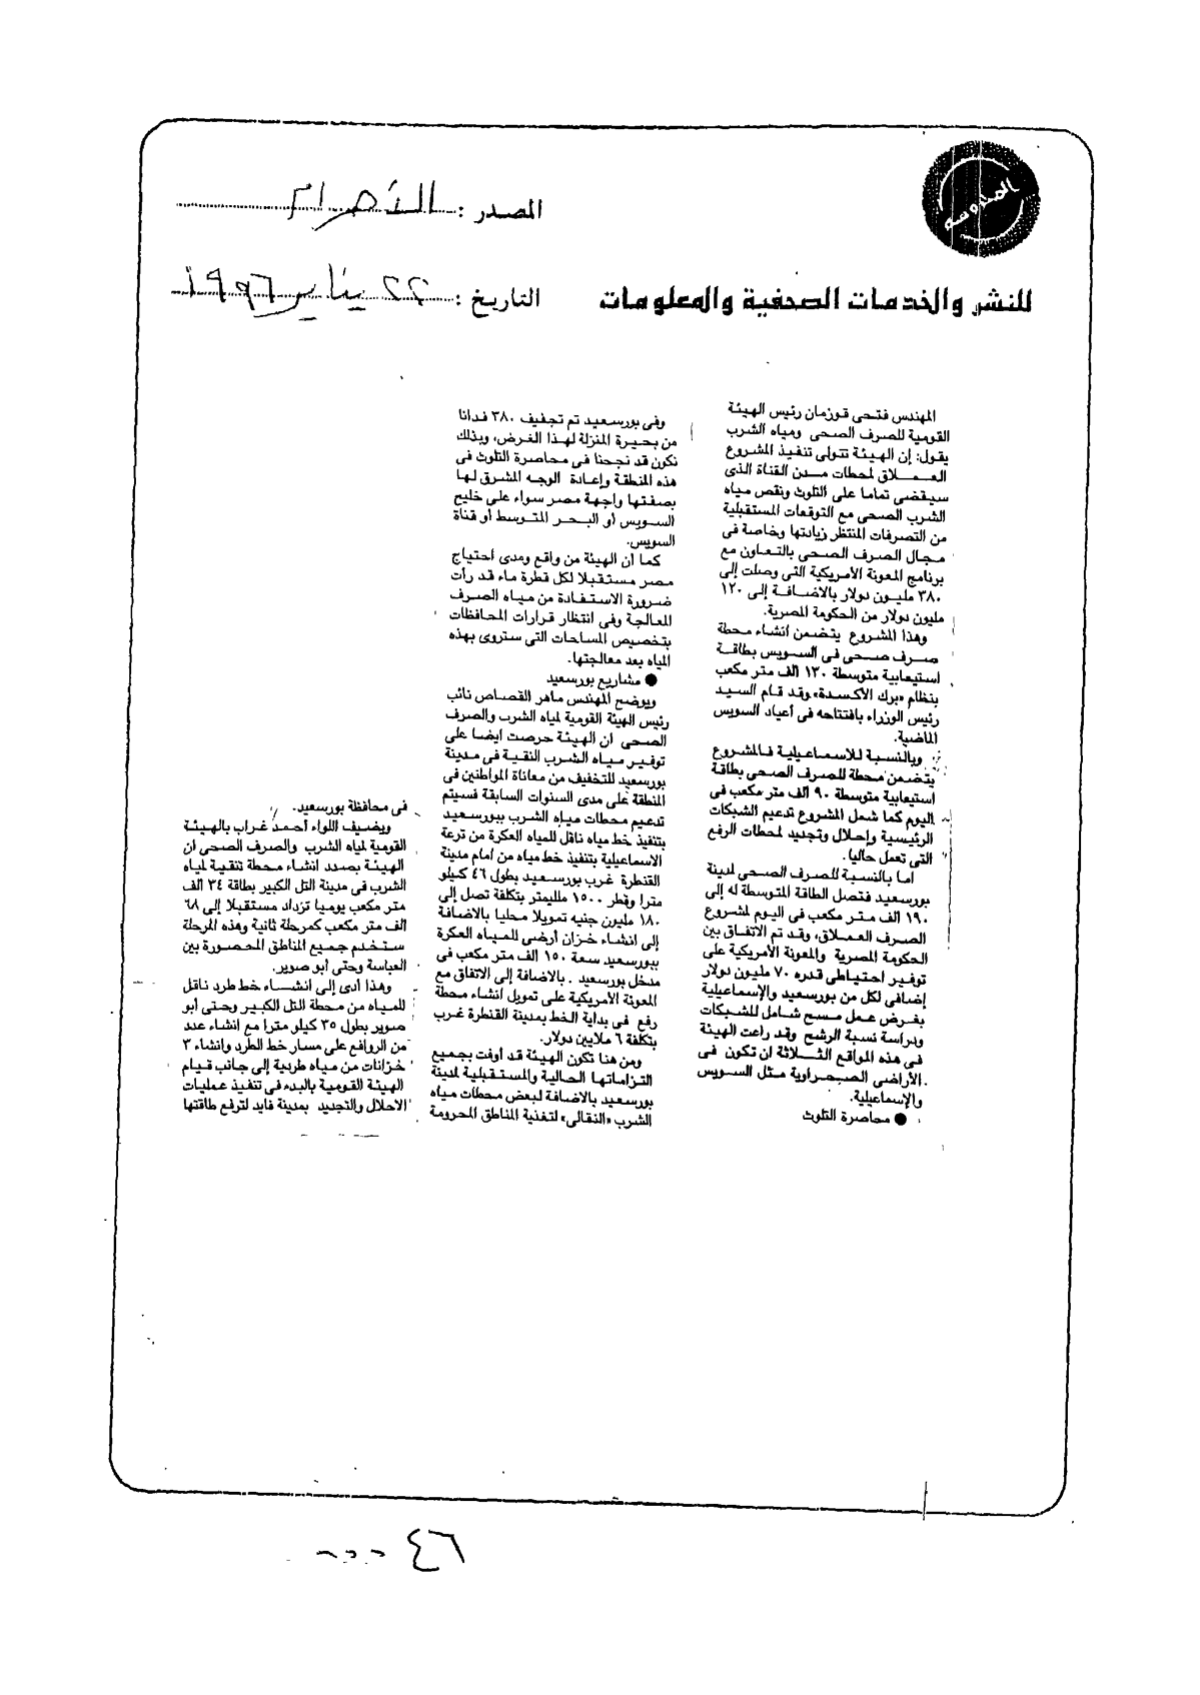 المصدر : الأهرام
للنشر والخدمات الصحفية والمعلومات
التاريخ : ٢٢ يناير ١٩٩٦
المهندس فتحى قوزمان رئيس الهيئة
القومية للصرف الصحى ومياه الشرب
يقول: إن الهيئة تتولى تنفيذ المشروع
العمــلاق لمحطات مــدن القناة الذى
سيقضى تماما على التلوث ونقص مياه
الشرب الصحى مع التوقعات المستقبلية
من التصرفات المنتظر زيادتها وخاصة فى
مجال الصرف الصحى بالتعاون مع
برنامج المعونة الأمريكية التى وصلت إلى
٣٨٠ مليون دولار بالاضافة إلى ١٢٠
مليون دولار من الحكومة المصرية.
وهذا المشروع يتضمن أنشاء محطة
صرف صحى فى السويس بطاقة
استيعابية متوسطة ١٣٠ الف متر مكعب
بنظام «برك الأكسدة» وقد قام السيد
رئيس الوزراء بافتتاحه فى أعياد السويس
الماضية.
وبالنسبة للاسماعيلية فالمشروع
يتضمن محطة للصرف الصحى بطاقة
استيعابية متوسطة ٩٠ الف متر مكعب فى
اليوم كما شمل المشروع تدعيم الشبكات
الرئيسية وإحلال وتجديد لمحطات الرفع
التى تعمل حاليا.
اما بالنسبة للصرف الصحى لمدينة
بورسعيد فتصل الطاقة المتوسطة له إلى
١٩٠ الف متر مكعب فى اليوم لمشروع
الصرف العملاق، وقد تم الاتفاق بين
الحكومة المصرية والمعونة الأمريكية على
توفير احتياطى قدره ٧٠ مليون دولار
إضافى لكل من بورسعيد والإسماعيلية
بغرض عمل مسح شامل للشبكات
ودراسة نسبة الرشح وقد راعت الهيئة
فى هذه المواقع الثلاثة ان تكون فى
الأراضى الصحراوية مثل السويس
والإسماعيلية.
● محاصرة التلوث
وفى بورسعيد تم تجفيف ٣٨٠ فدانا
من بحيرة المنزلة لهذا الغرض، وبذلك
نكون قد نجحنا فى محاصرة التلوث فى
هذه المنطقة وإعادة الوجه المشرق لها
بصفتها واجهة مصر سواء على خليج
السويس أو البحر المتوسط أو قناة
السويس.
كما أن الهيئة من واقع ومدى أحتياج
مصر مستقبلا لكل قطرة ماء قد رأت
ضرورة الاستفادة من مياه الصرف
المعالجة وفى انتظار قرارات المحافظات
بتخصيص المساحات التى ستروى بهذه
المياه بعد معالجتها.
● مشاريع بورسعيد
ويوضح المهندس ماهر القصاص نائب
رئيس الهيئة القومية لمياه الشرب والصرف
الصحى ان الهيئة حرصت ايضا على
توفير مياه الشرب النقية فى مدينة
بورسعيد للتخفيف من معاناة المواطنين فى
المنطقة على مدى السنوات السابقة فسيتم
تدعيم محطات مياه الشرب ببورسعيد
بتنفيذ خط مياه ناقل للمياه العكرة من ترعة
الاسماعيلية بتنفيذ خط مياه من أمام مدينة
القنطرة غرب بورسعيد بطول ٤٦ كيلو
مترا وقطر ١٥٠٠ ملليمتر بتكلفة تصل إلى
١٨٠ مليون جنيه تمويلا محليا بالاضافة
إلى انشاء خزان أرضى للمياه العكرة
ببورسعيد سعة ١٥٠ الف متر مكعب فى
مدخل بورسعيد . بالاضافة إلى الاتفاق مع
المعونة الأمريكية على تمويل أنشاء محطة
رفع فى بداية الخط بمدينة القنطرة غرب
بتكلفة ٦ ملايين دولار.
ومن هنا تكون الهيئة قد أوفت بجميع
التزاماتها الحالية والمستقبلية لمدينة
بورسعيد بالاضافة لبعض محطات مياه
الشرب «النقالى» لتغذية المناطق المحرومة
فى محافظة بورسعيد.
ويضيف اللواء أحمد غراب بالهيئة
القومية لمياه الشرب والصرف الصحى ان
الهيئة بصدد انشاء محطة تنقية لمياه
الشرب فى مدينة التل الكبير بطاقة ٣٤ الف
متر مكعب يوميا تزداد مستقبلا إلى ٦٨
الف متر مكعب كمرحلة ثانية وهذه المرحلة
ستخدم جميع المناطق المحصورة بين
العباسة وحتى أبو صوير.
وهذا أدى إلى انشاء خط طرد ناقل
للمياه من محطة التل الكبير وحتى أبو
صوير بطول ٣٥ كيلو مترا مع انشاء عدد
من الروافع على مسار خط الطرد وانشاء ٣
خزانات من مياه طردية إلى جانب قيام
الهيئة القومية بالبدء فى تنفيذ عمليات
الاحلال والتجديد بمدينة فايد لترفع طاقتها